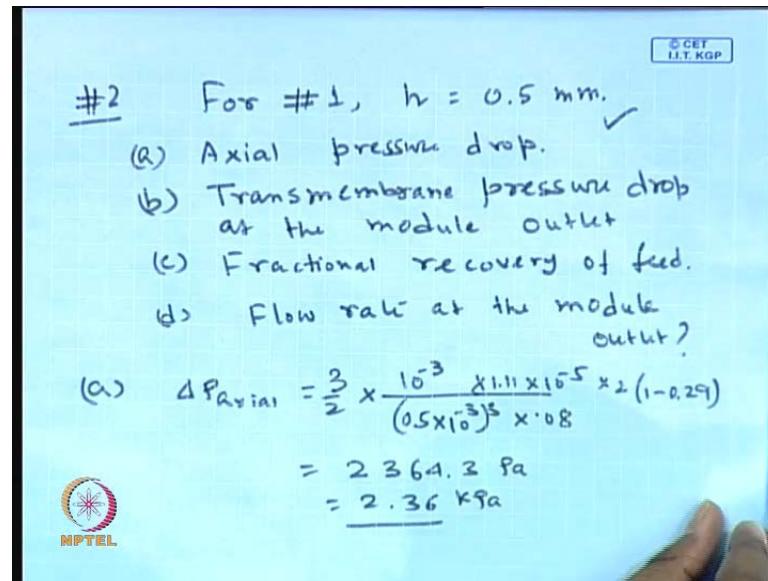 © CET
I.I.T. KGP
#2 For #1, h = 0.5 mm. ✓
(a) Axial pressure drop.
(b) Transmembrane pressure drop
at the module outlet
(c) Fractional recovery of feed.
(d) Flow rate at the module
outlet?
(a) ΔP axial = 3/2 × 10⁻³ × 1.11 × 10⁻⁵ × 2 (1-0.29) / (0.5×10⁻³)³ × .08
= 2364.3 Pa
= 2.36 kPa
NPTEL